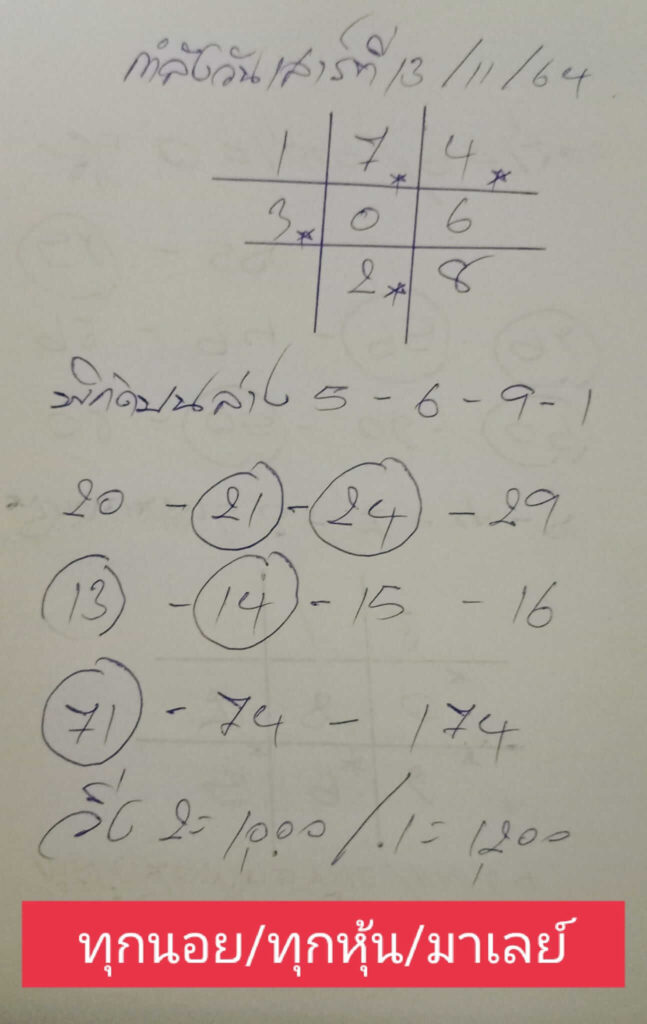 กำลังวันเสาร์ที่ 13/11/64
1 7* 4*
3* 0 6
2* 8
พิกัดบนล่าง 5-6-9-1
20 - 21 - 24 - 29
13 - 14 - 15 - 16
71 - 74 - 174
วิ่ง 2=1,000/.1=1,200
ทุกนอย/ทุกหุ้น/มาเลย์